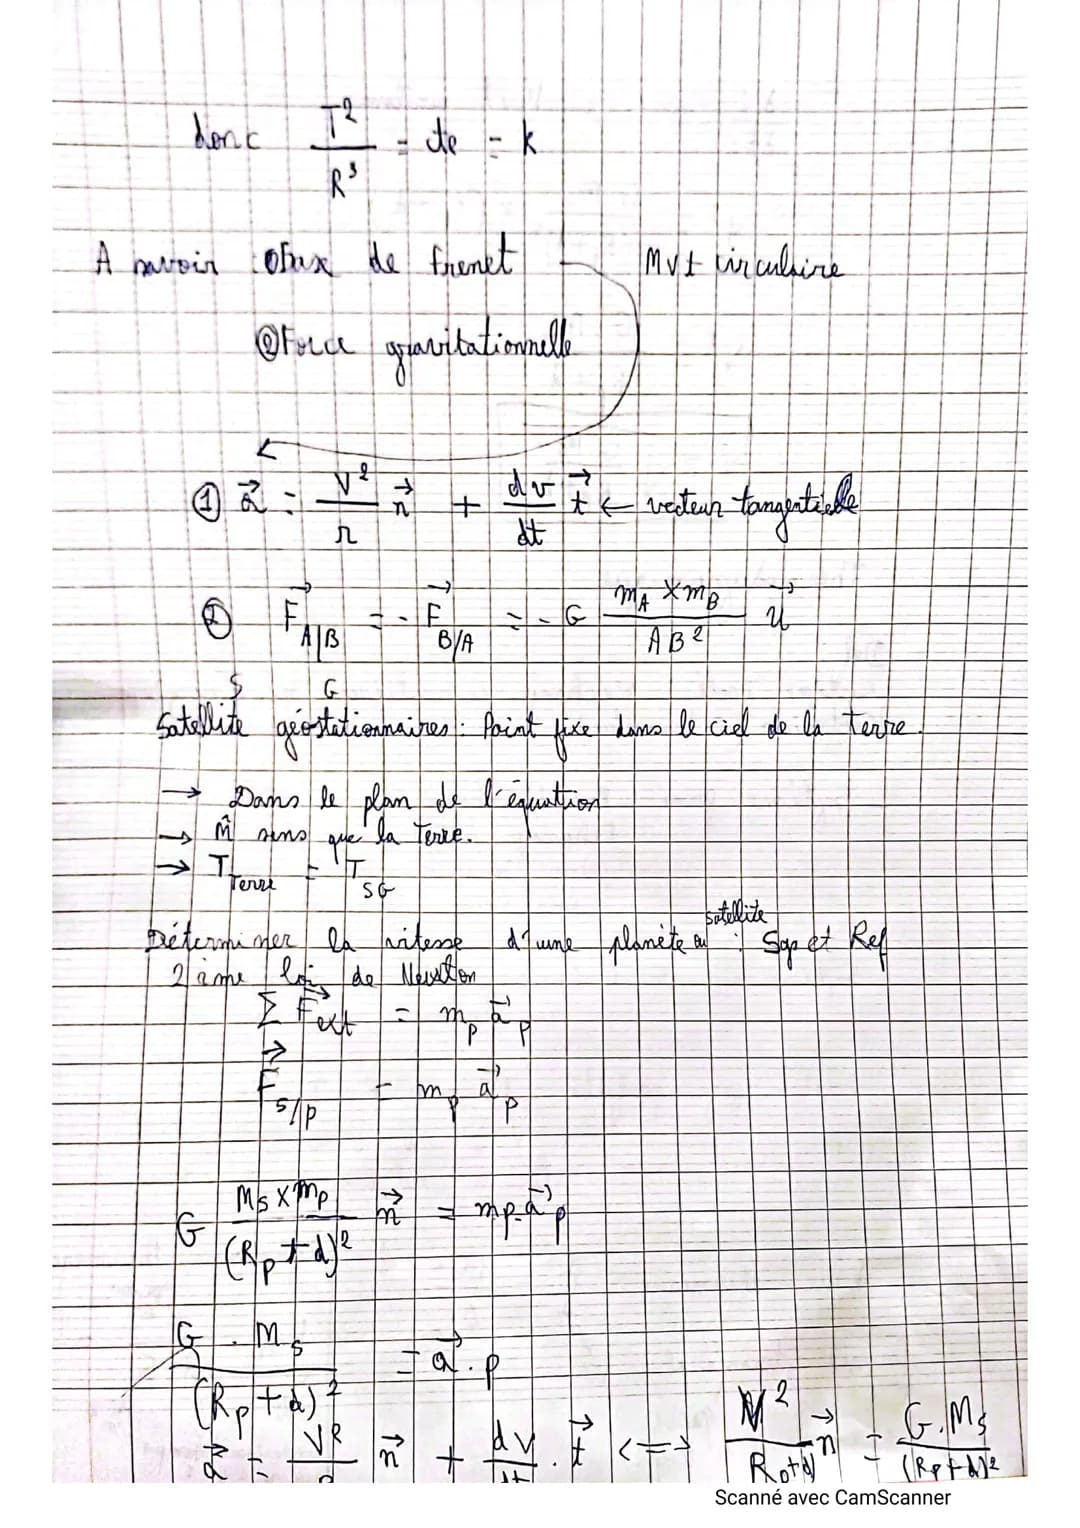 donc T² / R³ = cte = k
A savoir : ① de frenet Mvt circulaire
② Force gravitationnelle
① a⃗ = V²/r n⃗ + dv/dt t⃗ ← vecteur tangentielle
② F⃗ A/B = - F⃗ B/A = - G (mA × mB)/AB² u⃗
S G
Satellite géostationnaires : Point fixe dans le ciel de la Terre.
→ Dans le plan de l'équation
→ m̂ sens que la Terre.
→ T Terre = T SG
satellite
Déterminer la vitesse d'une planète ou : Sys et Ref
2ième loi de Newton
Σ F⃗ext = mp a⃗p
F⃗ s/p = mp a⃗p
G (Ms × mp)/(Rp + d)² n⃗ = mp.a⃗p
G . Ms / (Rp + d)² = a⃗.p
a⃗ = V² n⃗ + dv/dt . t⃗ <=> V²/(Rp+d) n⃗ = G.Ms/(Rp+d)²
Scanné avec CamScanner